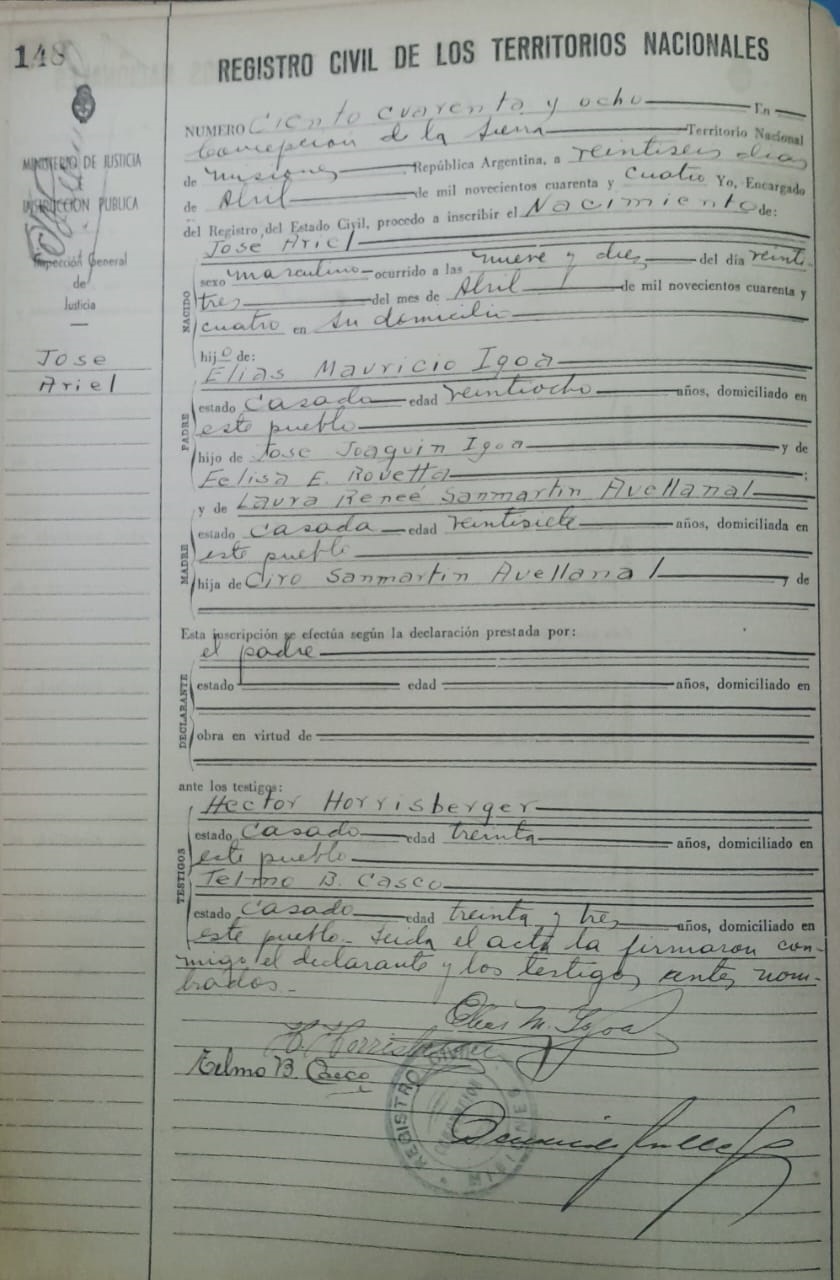 148
REGISTRO CIVIL DE LOS TERRITORIOS NACIONALES
MINISTERIO DE JUSTICIA
INSTRUCCIÓN PUBLICA
Inspección General
de
Justicia
Jose
Ariel
NUMERO Ciento cuarenta y ocho En
Concepcion de la Sierra Territorio Nacional
de Misiones República Argentina, a veintiseis dias
de Abril de mil novecientos cuarenta y cuatro Yo, Encargado
del Registro del Estado Civil, procedo a inscribir el Nacimiento de:
NACIDO
Jose Ariel
sexo masculino ocurrido a las nueve y diez del día veinti-
tres del mes de Abril de mil novecientos cuarenta y
cuatro en su domicilio
hijo de:
PADRE
Elias Mauricio Igoa
estado casado edad veintiocho años, domiciliado en
este pueblo
hijo de Jose Joaquin Igoa y de
Felisa E. Rovetta ;
MADRE
y de Laura Reneé Sanmartin Avellanal
estado casada edad veintisiete años, domiciliada en
este pueblo
hija de Ciro Sanmartin Avellanal y de
Esta inscripción se efectúa según la declaración prestada por:
DECLARANTE
el padre
estado edad años, domiciliado en
obra en virtud de
ante los testigos:
TESTIGOS
Hector Horrisberger
estado casado edad treinta años, domiciliado en
este pueblo
Telmo B. Casco
estado casado edad treinta y tres años, domiciliado en
este pueblo. Leida el acta la firmaron con-
migo el declarante y los testigos antes nom-
brados.
Elias M. Igoa
H. Horrisberger
Telmo B. Casco
REGISTRO CIVIL
MISIONES